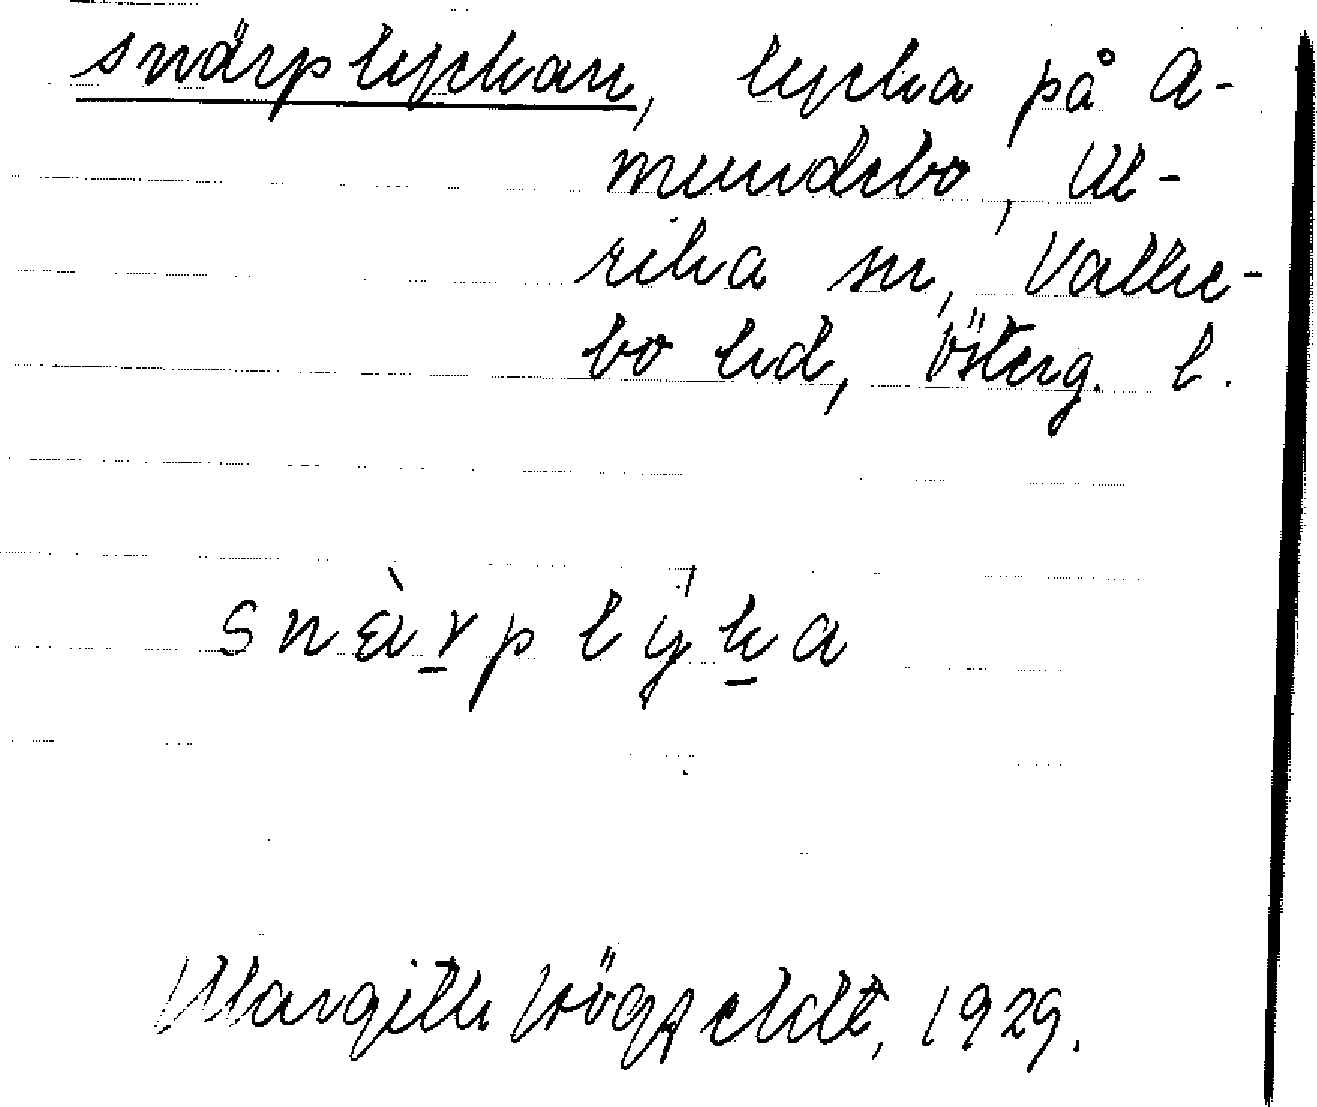 snärplyckan, lycka på A-
mundebo, Ul-
rika sn, Valke-
bo hd, Österg. l.
snὲrplýka
Margith Högfeldt, 1929.